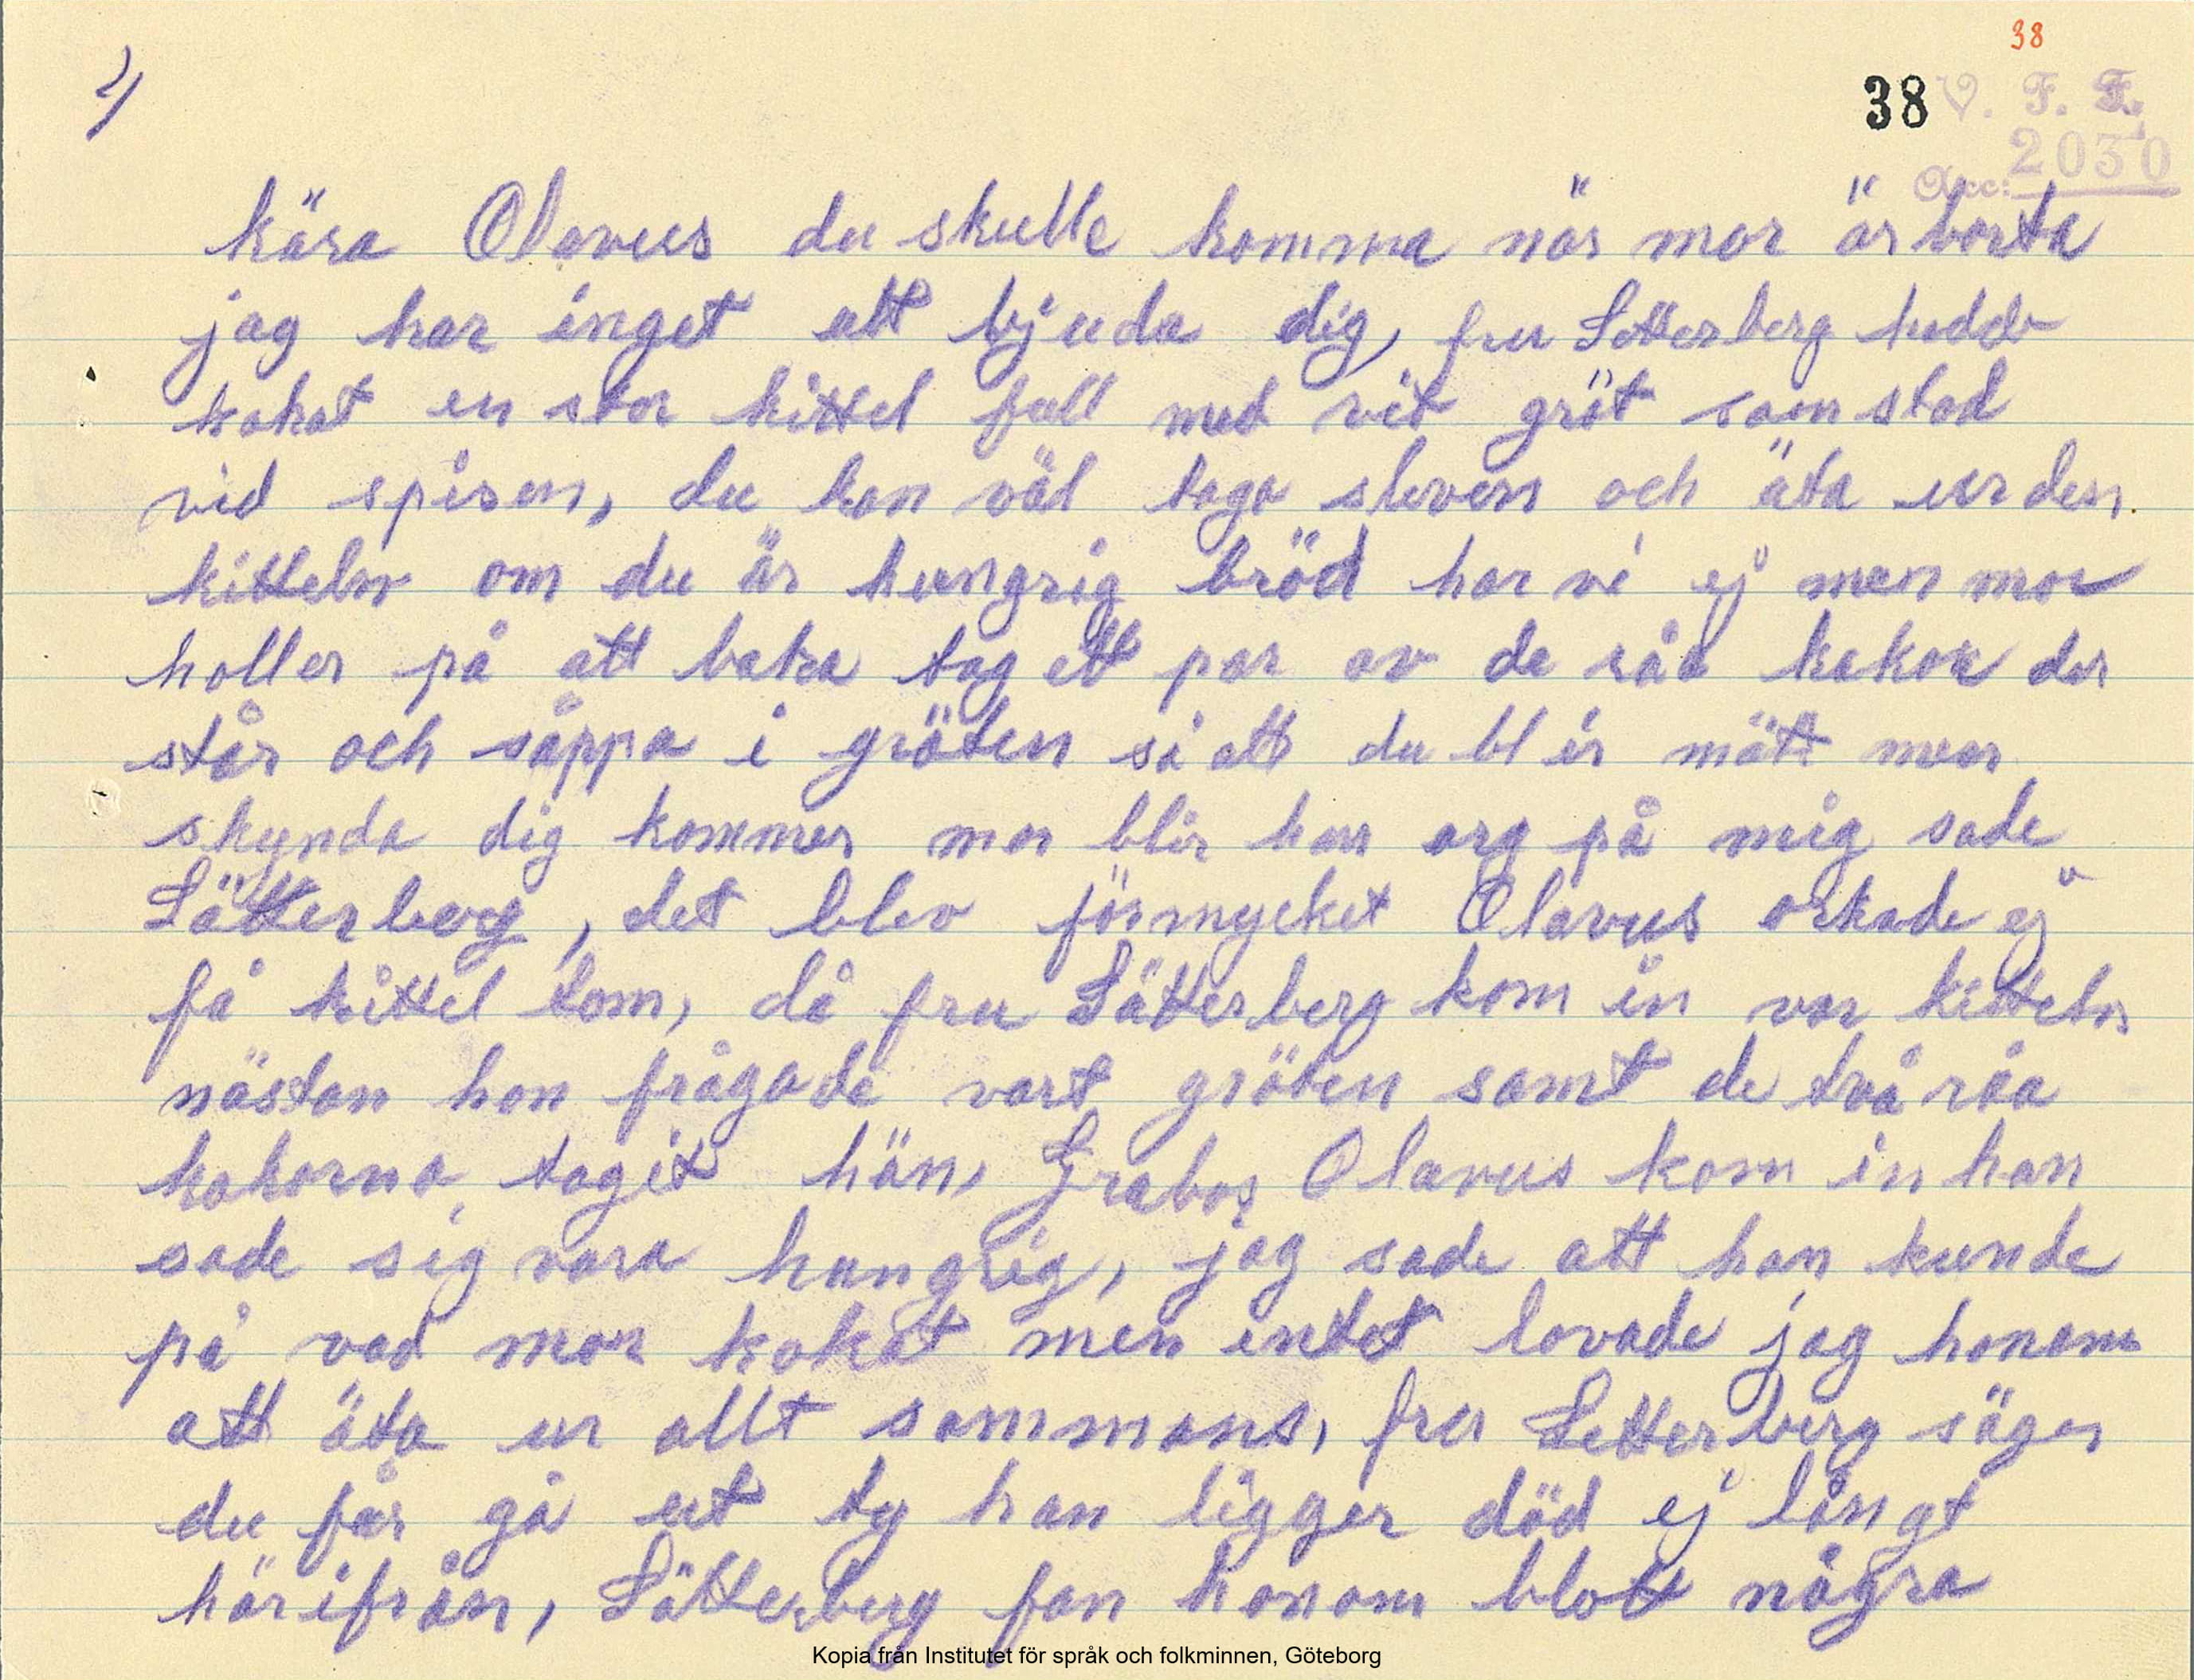 38
4)
38 V. F. F.
Acc: 2030
kära Olavus du skulle komma när mor är borta
jag har inget att bjuda dig, fru Sötterberg hadde
kokat en stor kittel full med vit gröt som stod
vid spisen, du kan väl taga sleven och äta ur den
kitteln om du är hungrig bröd har vi ej men mor
holler på att baka tag ett par av de råa kakor der
står och såppa i gröten så att du blir mätt men
skynda dig kommer mor blir hon arg på mig sade
Sötterberg, det blev förmycket Olavus orkade ej
få kittel tom, då fru Sätterberg kom in var kitteln
nästan hon frågade vart gröten samt de två råa
kakorna tagit hän, Grabos Olavus kom in han
sade sig vara hungrig, jag sade att han kunde
på vad mor kokat men intet lovade jag honom
att äta ur allt sammans, fru Setterberg säger
du får gå ut ty han ligger död ej långt
härifrån, Sätterberg fan honom blott några
Kopia från Institutet för språk och folkminnen, Göteborg